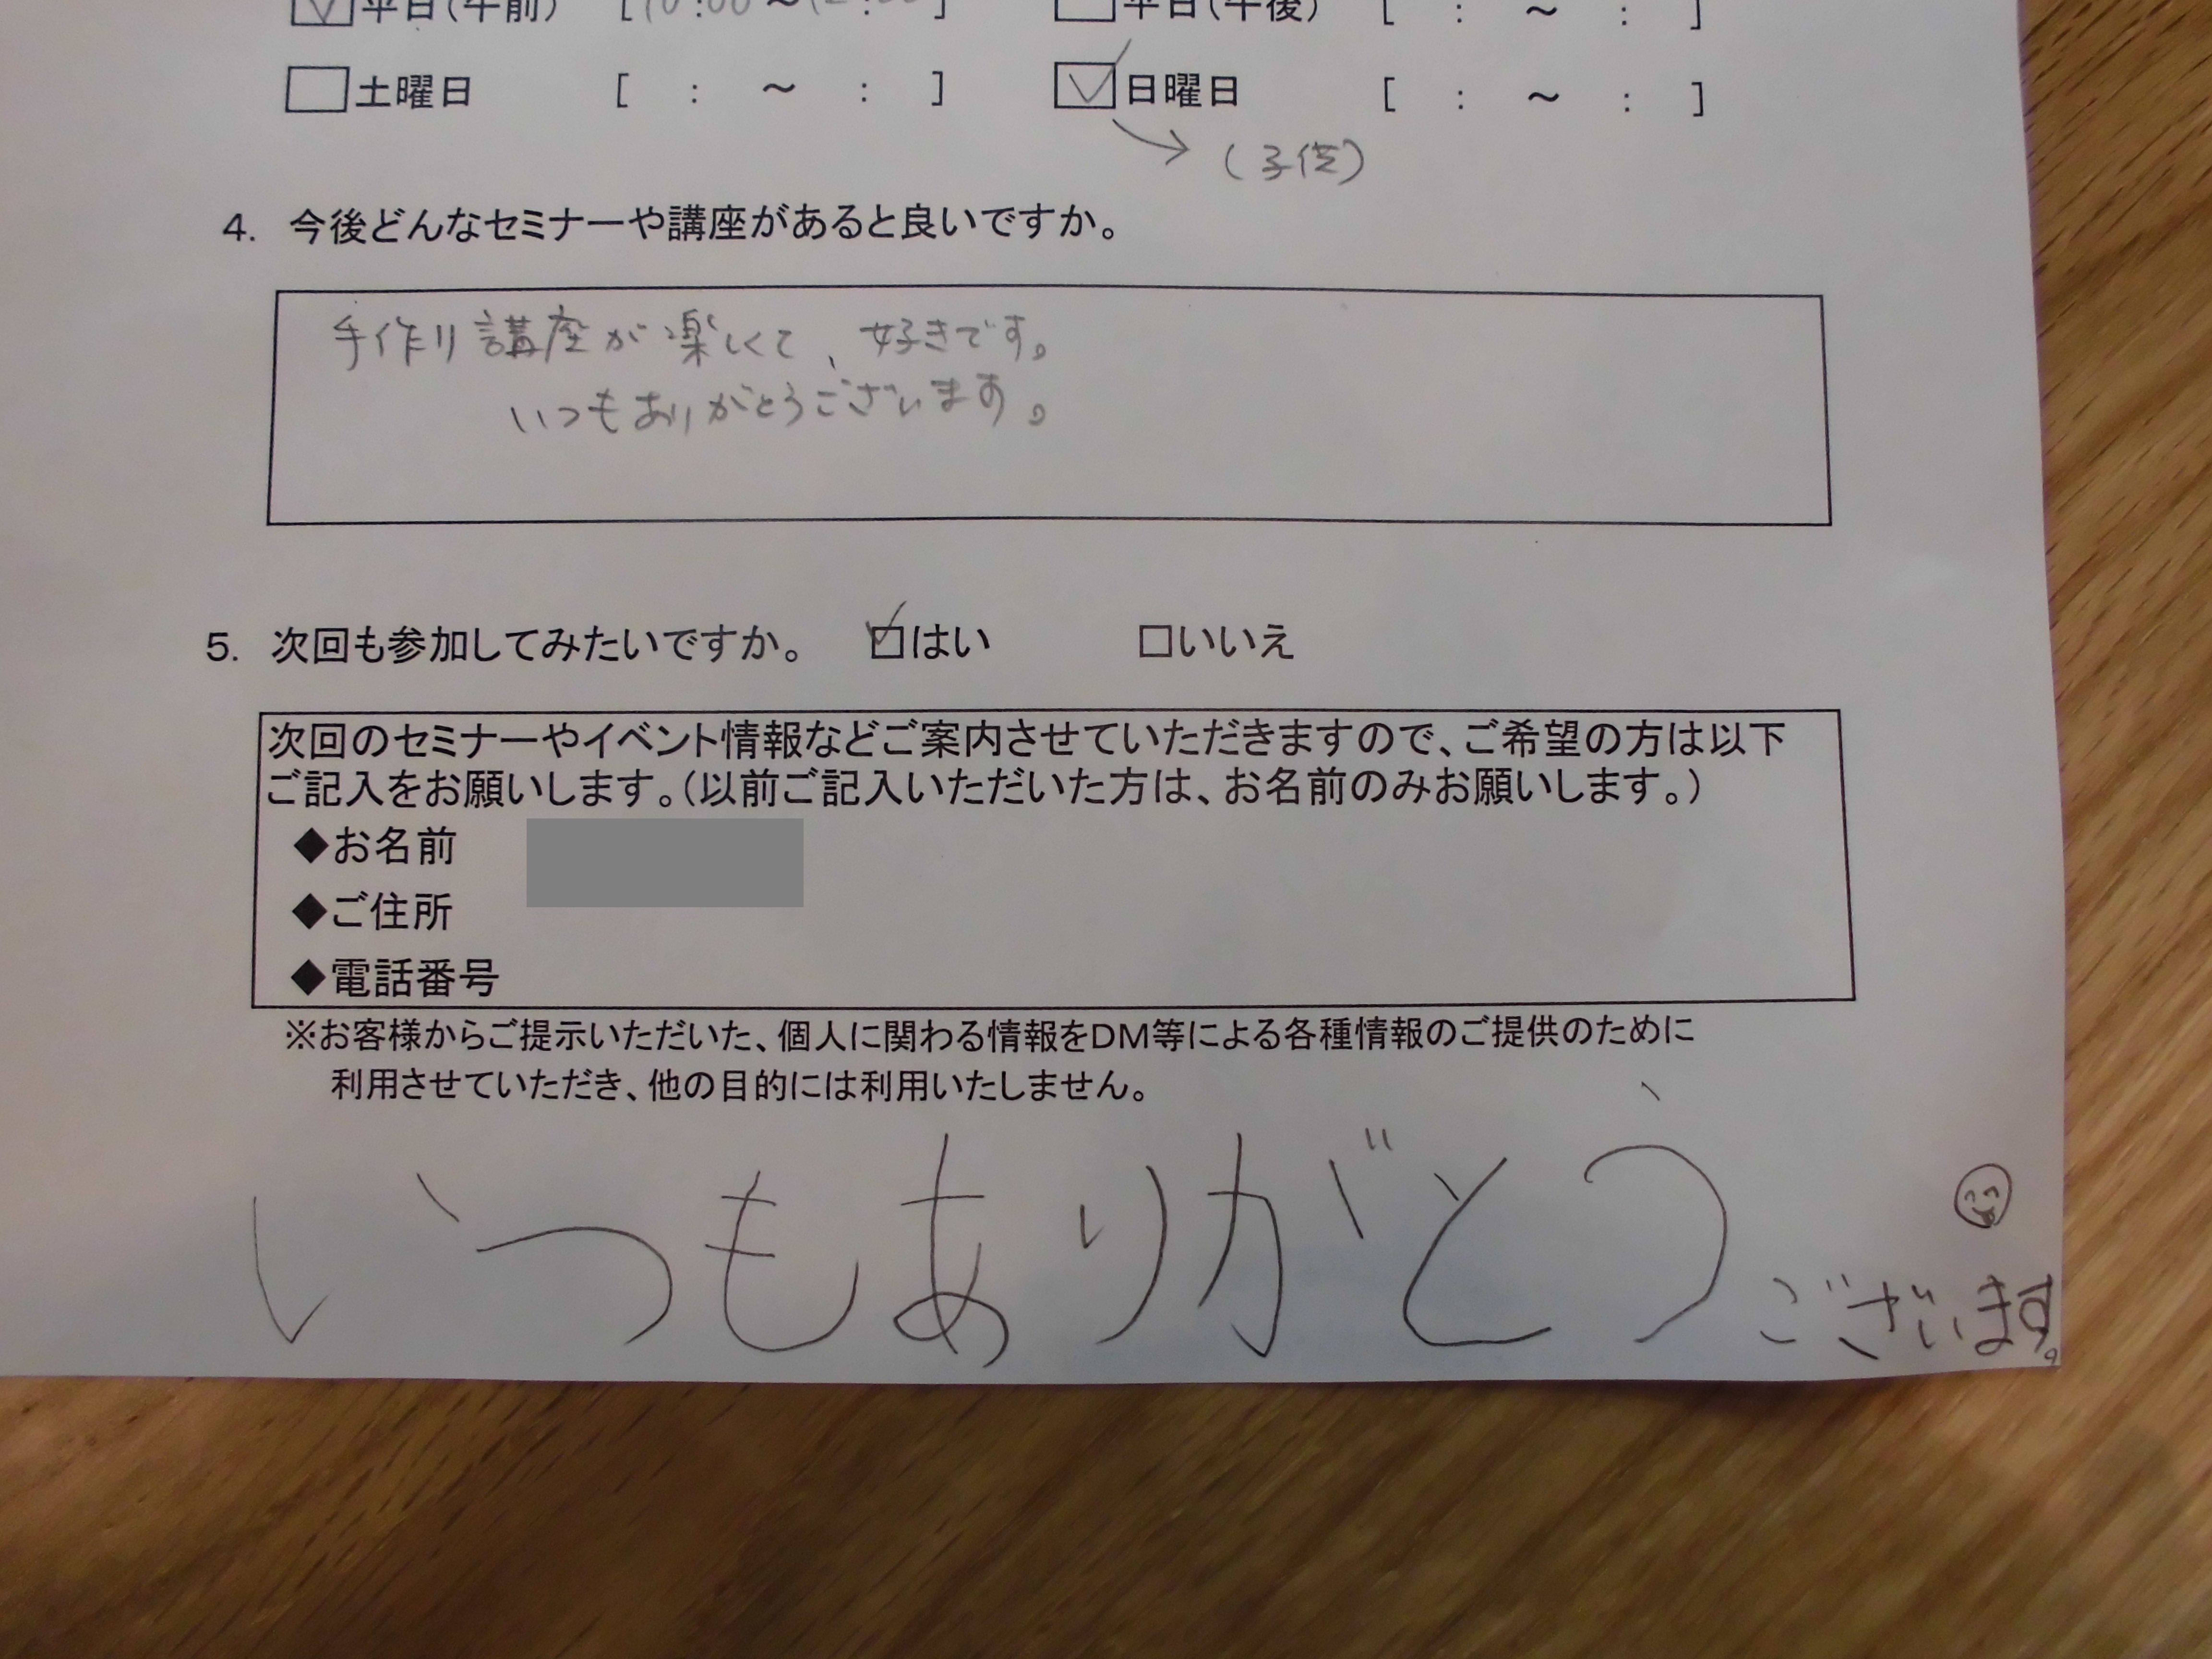 平日(午前) [10:00~
平日(午後) [ : ~ : ]
土曜日 [ : ~ : ]
日曜日 [ : ~ : ]
(子供)
4. 今後どんなセミナーや講座があると良いですか。
手作り講座が楽しくて、好きです。
いつもありがとうございます。
5. 次回も参加してみたいですか。 はい いいえ
次回のセミナーやイベント情報などご案内させていただきますので、ご希望の方は以下
ご記入をお願いします。(以前ご記入いただいた方は、お名前のみお願いします。)
◆お名前
◆ご住所
◆電話番号
※お客様からご提示いただいた、個人に関わる情報をDM等による各種情報のご提供のために
利用させていただき、他の目的には利用いたしません。
いつもありがとうございます。